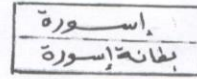 إسورة
بطانة إسورة